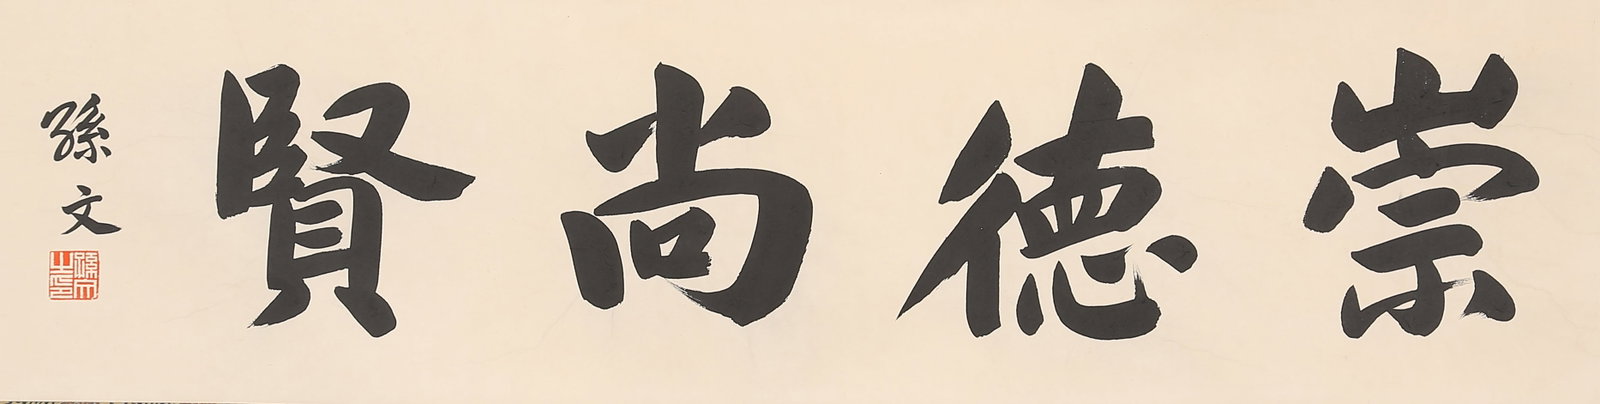 崇德尚賢
孫文
孫文之印